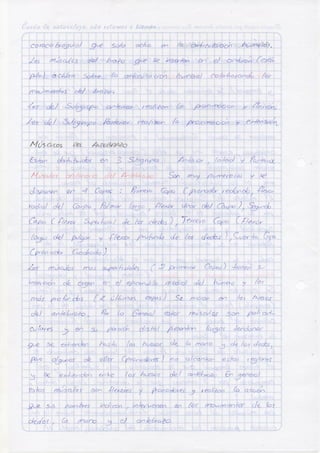 coracobraquial que solo actúa en la articulación humeral.
Los músculos del brazo que se insertan en el antebrazo
sobre la articulación humeral colaborando los
movimientos del brazo.
Los del Subgrupo anterior realizan la pronación y flexión.
Los del Subgrupo Posterior realizan la y extensión
MÚSCULOS DEL ANTEBRAZO
Están distribuidos en 3 Subgrupos Anterior, lateral y Posterior
Músculos anteriores del Antebrazo Son muy numerosos y se
disponen en 4 Capas: Primera Capa (pronador redondo, flexor
radial del Carpo, Palmar largo, Flexor ulnar del Carpo), Segunda
Capa (Flexor Superficial de los dedos), Tercera Capa (Flexor
largo del pulgar y flexor profundo de los dedos), Cuarta Capa
(pronador Cuadrado)
Los músculos más superficiales (2 primeras Capas) tienen
de origen en el epicóndilo medial del húmero y los
más profundos (2 últimas capas) Se en los huesos
del antebrazo. Por lo General estos músculos son poliarti-
culares y en su porción distal presentan largos tendones
que se extienden hasta los huesos de la mano y de los dedos,
Pero algunos de ellos (pronadores) no alcanzan estas regiones
y Se extienden entre los huesos del antebrazo. En general
estos músculos son flexores y pronadores y realizan la acción
que su nombre indica, intervienen en los movimientos de los
dedos, la mano y el antebrazo.